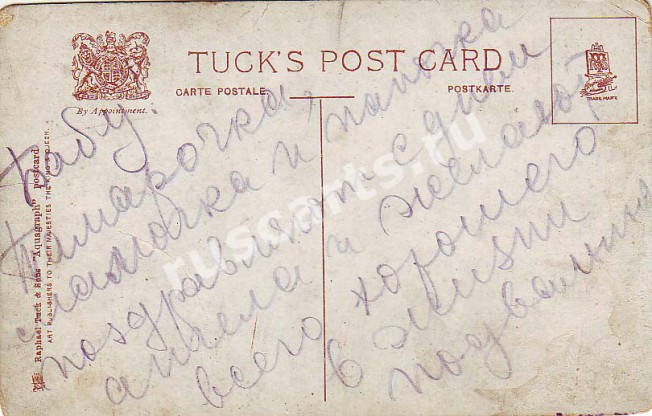 TUCK'S POST CARD
CARTE POSTALE.
POSTKARTE.
By Appointment.
TRADE MARK
Raphael Tuck & Sons' "Aquagraph" Postcard
ART PUBLISHERS TO THEIR MAJESTIES THE KING & QUEEN.
Бабу.
Тамарочка,
мамочка и папочка
поздравляют с днем
ангела и желают
всего хорошего
в жизни
ruscarts.ru